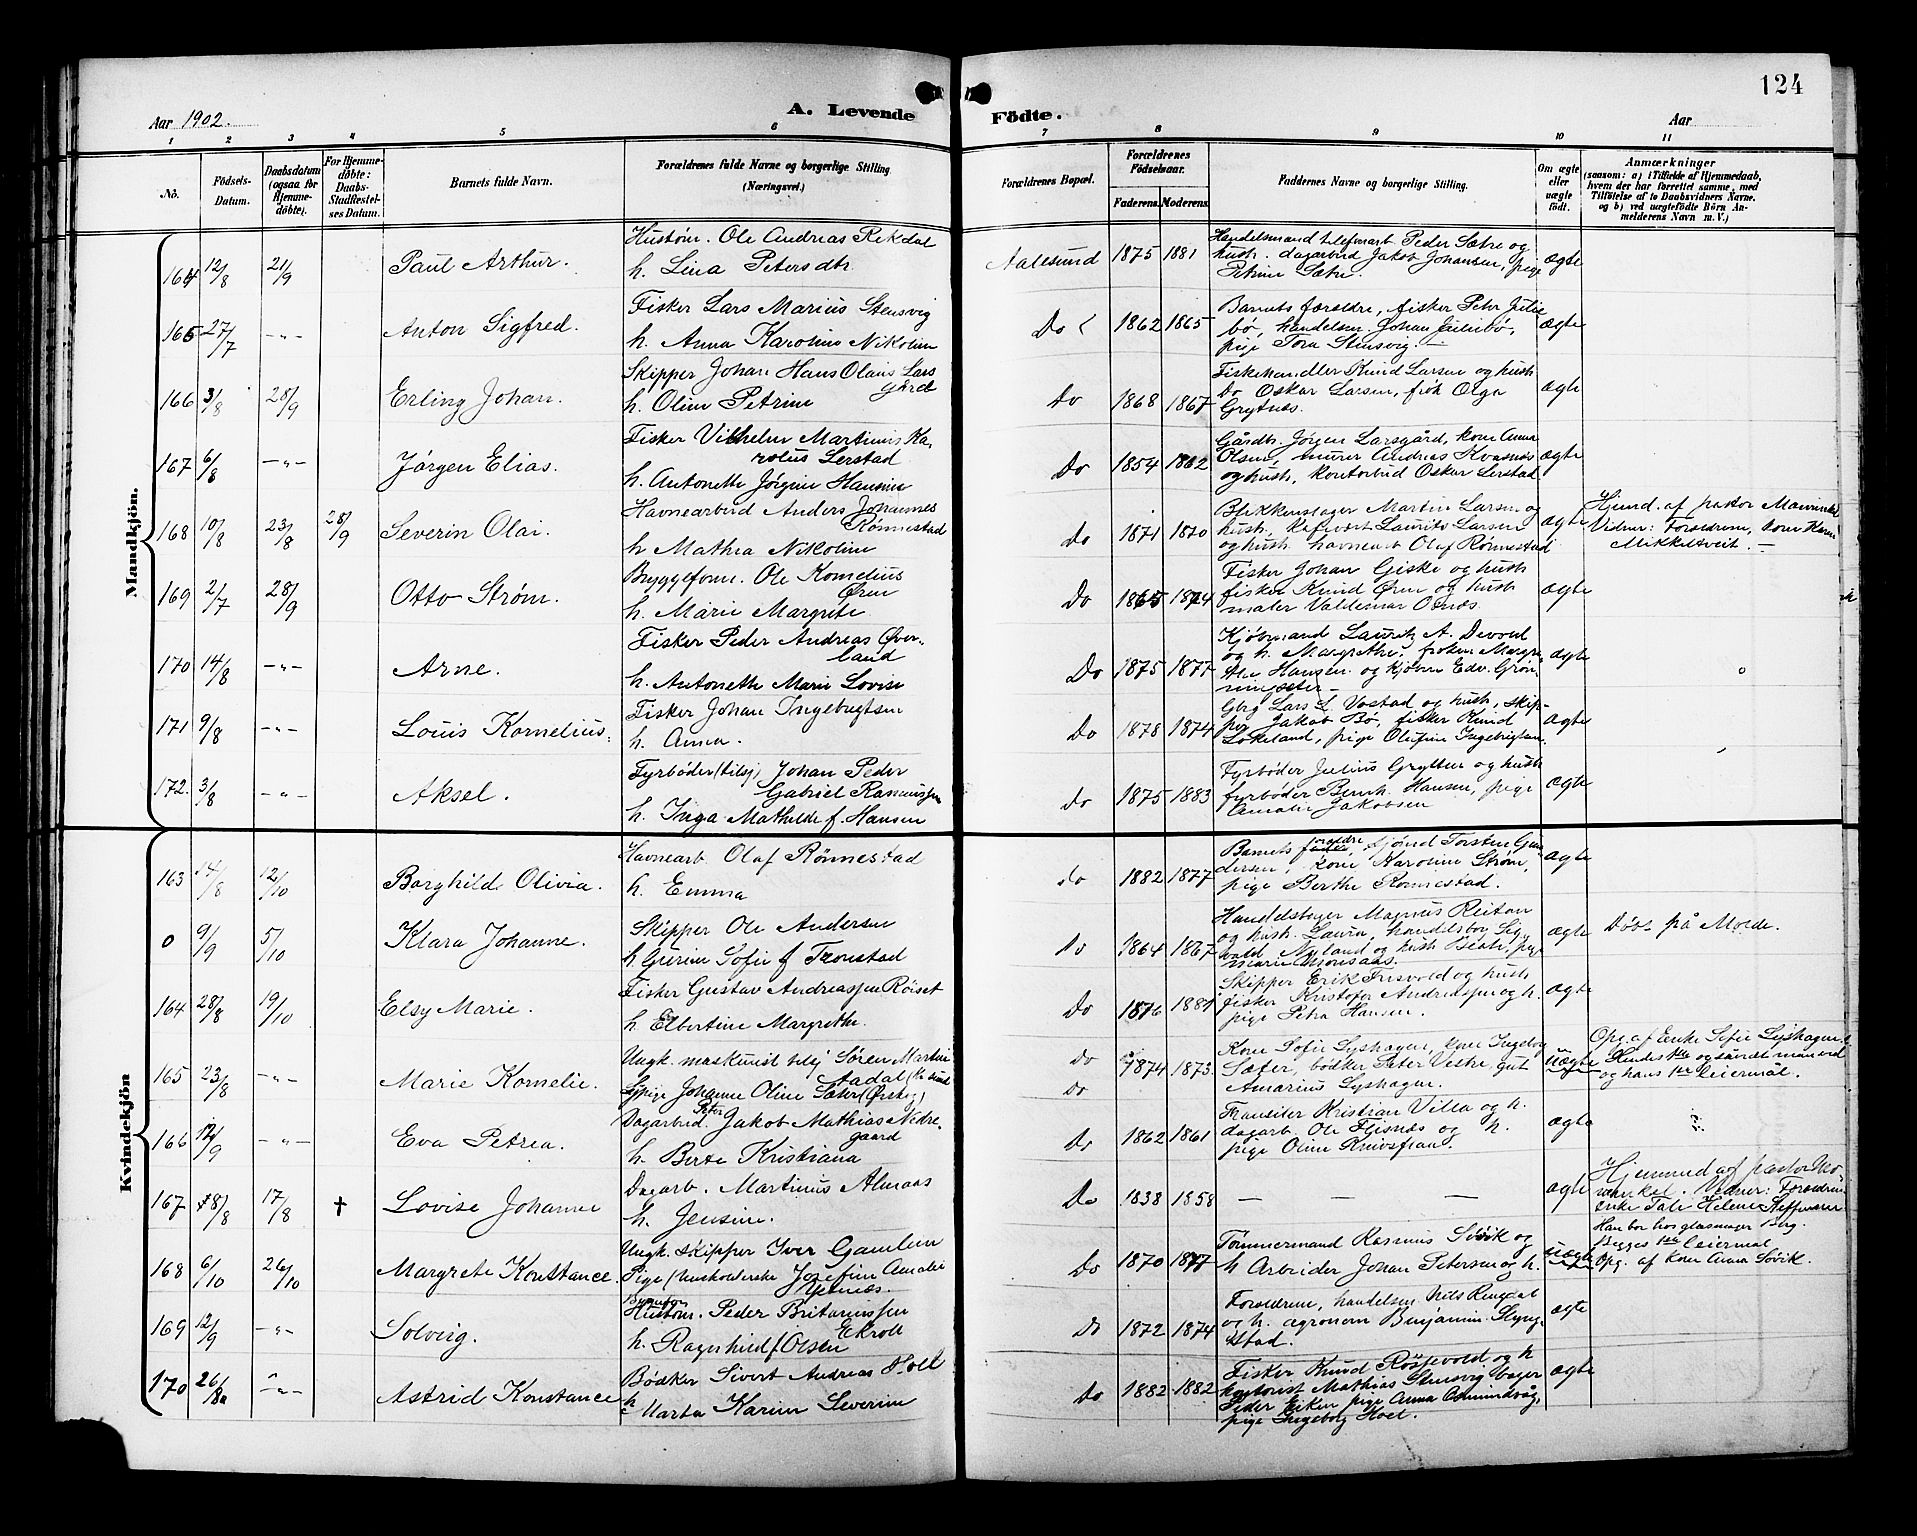 124
Aar 1902.
A. Levende
Födte.
Aar
1 2 3 4 5 6 7 8 9 10 11
No.
Födsels-
Datum.
Daabsdatum
(ogsaa for
Hjemme-
döbte).
For Hjemme-
döbte:
Daabs-
Stadfestel-
ses Datum.
Barnets fulde Navn.
Forældrenes fulde Navne og borgerlige Stilling
(Næringsvei.)
Forældrenes Bopæl.
Forældrenes
Fødselsaar.
Faderens. Moderens.
Faddernes Navne og borgerlige Stilling.
Om ægte
eller
uægte
født.
Anmærkninger
(saasom: a) i Tilfælde af Hjemmedaab,
hvem der har forrettet samme, med
Tilföielse af to Daabsvidners Navne.
og b) ved uægtefödte Börn An-
melderens Navn m. V.)
Mandkjön.
164 12/8 21/9 Paul Arthur.
Hustøm. Ole Andreas Rekdal
h. Lina Petersdtr
Aalesund 1875 1881
Handelsmand Peder Sætre og
hush. dagarbud Jakob Johansen, pige
Petrine Sætre.
ægte
165 27/7 -"- Anton Sigfred.
Fisker Lars Marius Stensvig
h. Anna Karoline Nikoline
Do 1862 1865
Barnets foreldre, fisker Petr Julie
bø, handelsm. Johan Juliebø,
pige Tora Stensvig.
ægte
166 3/8 28/9 Erling Johan.
Skipper Johan Hans Olaus Lars
gård
h. Oline Petrine
Do 1868 1867
Fiskehandler Knud Larsen og hush
Do Oskar Larsen, frøk Olga
Grytnæs.
ægte
167 6/8 -"- Jørgen Elias.
Fisker Vilhelm Martinus Ka-
rolus Lerstad
h. Antonette Jørgine Hansine
Do 1854 1862
Gårdbr. Jørgen Larsgård, kone Anna
Olsen, murer Andreas Kvasnes
og hush, kontorbud Oskar Lerstad
ægte
168 10/8 23/8 28/9 Severin Olai.
Havnearbeid Anders Johannes
Rønnestad
h Mathea Nikoline
Do 1871 1870
Blikkenslager Martin Larsen og
hush. Laurits Larsen
og hush. havnearb Olaf Rønnestad
ægte
Hjemd. af pastor
Vidner: Forældrene, kone
Mikkeltveit.
169 2/7 28/9 Otto Strøm.
Bryggeform. Ole Kornelius
Øren
h. Marie Margrete
Do 1865 1874
Fisker Johan Giske og hush
fisker Knud Øren og hush
maler Valdemar Osnæs.
ægte
170 14/8 -"- Arne.
Fisker Peder Andreas Over-
land
h. Antonette Marie Lovise
Do 1875 1877
Kjøbmand Lauritz A. Devold
og h. Margrethe, frøken Margre-
the Hansen og kjøbm Edv. Grøn-
ningseter
ægte
171 9/8 -"- Louis Kornelius.
Fisker Johan Ingebrigtsen
h. Anna.
Do 1878 1874
Gbrg Lars L. Vostad og hush, skip-
per Jakob Bø, fisker Knud
Løkeland, pige Olufine Ingebrigtsen.
ægte
172. 3/8 -"- Aksel.
Fyrbøder (tilsj) Johan Peder
Gabriel Rasmussen
h. Inga Mathilde f. Hansen
Do 1875 1883
Fyrbøder Julius Grytten og hush
fyrbøder Bernh. Hansen, pige
Amalie Jakobsen
ægte
Kvindekjön
163 14/8 12/10 Borghild Olivia.
Havnearb. Olaf Rønnestad
h. Emma
do 1882 1877
Barnets foreldre, sjømd Torsten Gun-
dersen, kone Karoline Strøm,
pige Berthe Rønnestad.
ægte
0 9/9 5/10 Klara Johanne.
Skipper Ole Andersen
h. Gurine Sofie f Tronstad
Do 1864 1867
Handelsborger Magnus Reiton
og hush. Laura, handelsbor Sig-
vald Nyland og hush Beate, pige
Marie Monsaas.
ægte
Døbt på Molde.
164 28/8 19/10 Elsy Marie.
Fisker Gustav Andreassen Røiset
h. Elbertine Margrethe
Do 1876 1881
Skipper Erik Frisvold og hush
fisker Kristofer Andreassen og h.
pige Petra Hansen.
ægte
165 23/8 -"- Marie Kornelie.
Ungk. maskinist tilsj Søren Martin
Aadal (Kr.sund
pige Johanne Oline Sæter (Ørskog)
Do
Do
1874 1873
Kone Sofie Lyshagen, kone Ingeborg
Sæter, bødker Peter Vestre, gut
Amarius Lyshagen.
uægte
Opg. af Enke Sofie Lyshagen.
Hendes 1ste og såvidt man ved
og hans 1ste leiermål.
166 12/9 -"- Eva Petrea.
Dagarbud. Peter Jakob Mathias Nedre-
gaard
h. Berte Kristiana
Do 1862 1861
Transiter Kristian Villa og h.
dagarb. Ole Flisnæs og h.
pige Oline Knivsflaa.
ægte
167 8/8 17/8 † Lovise Johanne
Dagarb. Martinus Almaas
h. Jensine.
Do 1838 1858
— — —
ægte
Hjemmed af pastor
Vidner: Forældrene
enke Tale Helene
168 6/10 26/10 Margrete Konstance.
Ungk. skipper Iver Gamlem
Pige (husholderske Josefine Amalie
Do 1870 1877
Tømmermand Rasmus Søvik og
h Arbeider Johan Petersen og h.
uægte
Han bor hos glasmager Berg.
Begges 1ste leiermal
Opg. af kone Anna Søvik.
169 12/9 -"- Solveig.
Hustøm. Peder Britanussen
Ekroll
h. Ragnhild f Olsen
Do 1872 1874
Forældrene, handelsm. Nils Ringdal
og h. agronom Benjamin Slyng-
stad.
ægte
170 26/8 -"- Astrid Konstance
Bødker Sivert Andreas Hoel
h Marta Karine Severine
Do 1882 1882
Fisker Knud Røssevold og h
kontorist Mathias Stensvig bager
Peder Eiken pige Anna
pige Ingeborg Hoel.
ægte